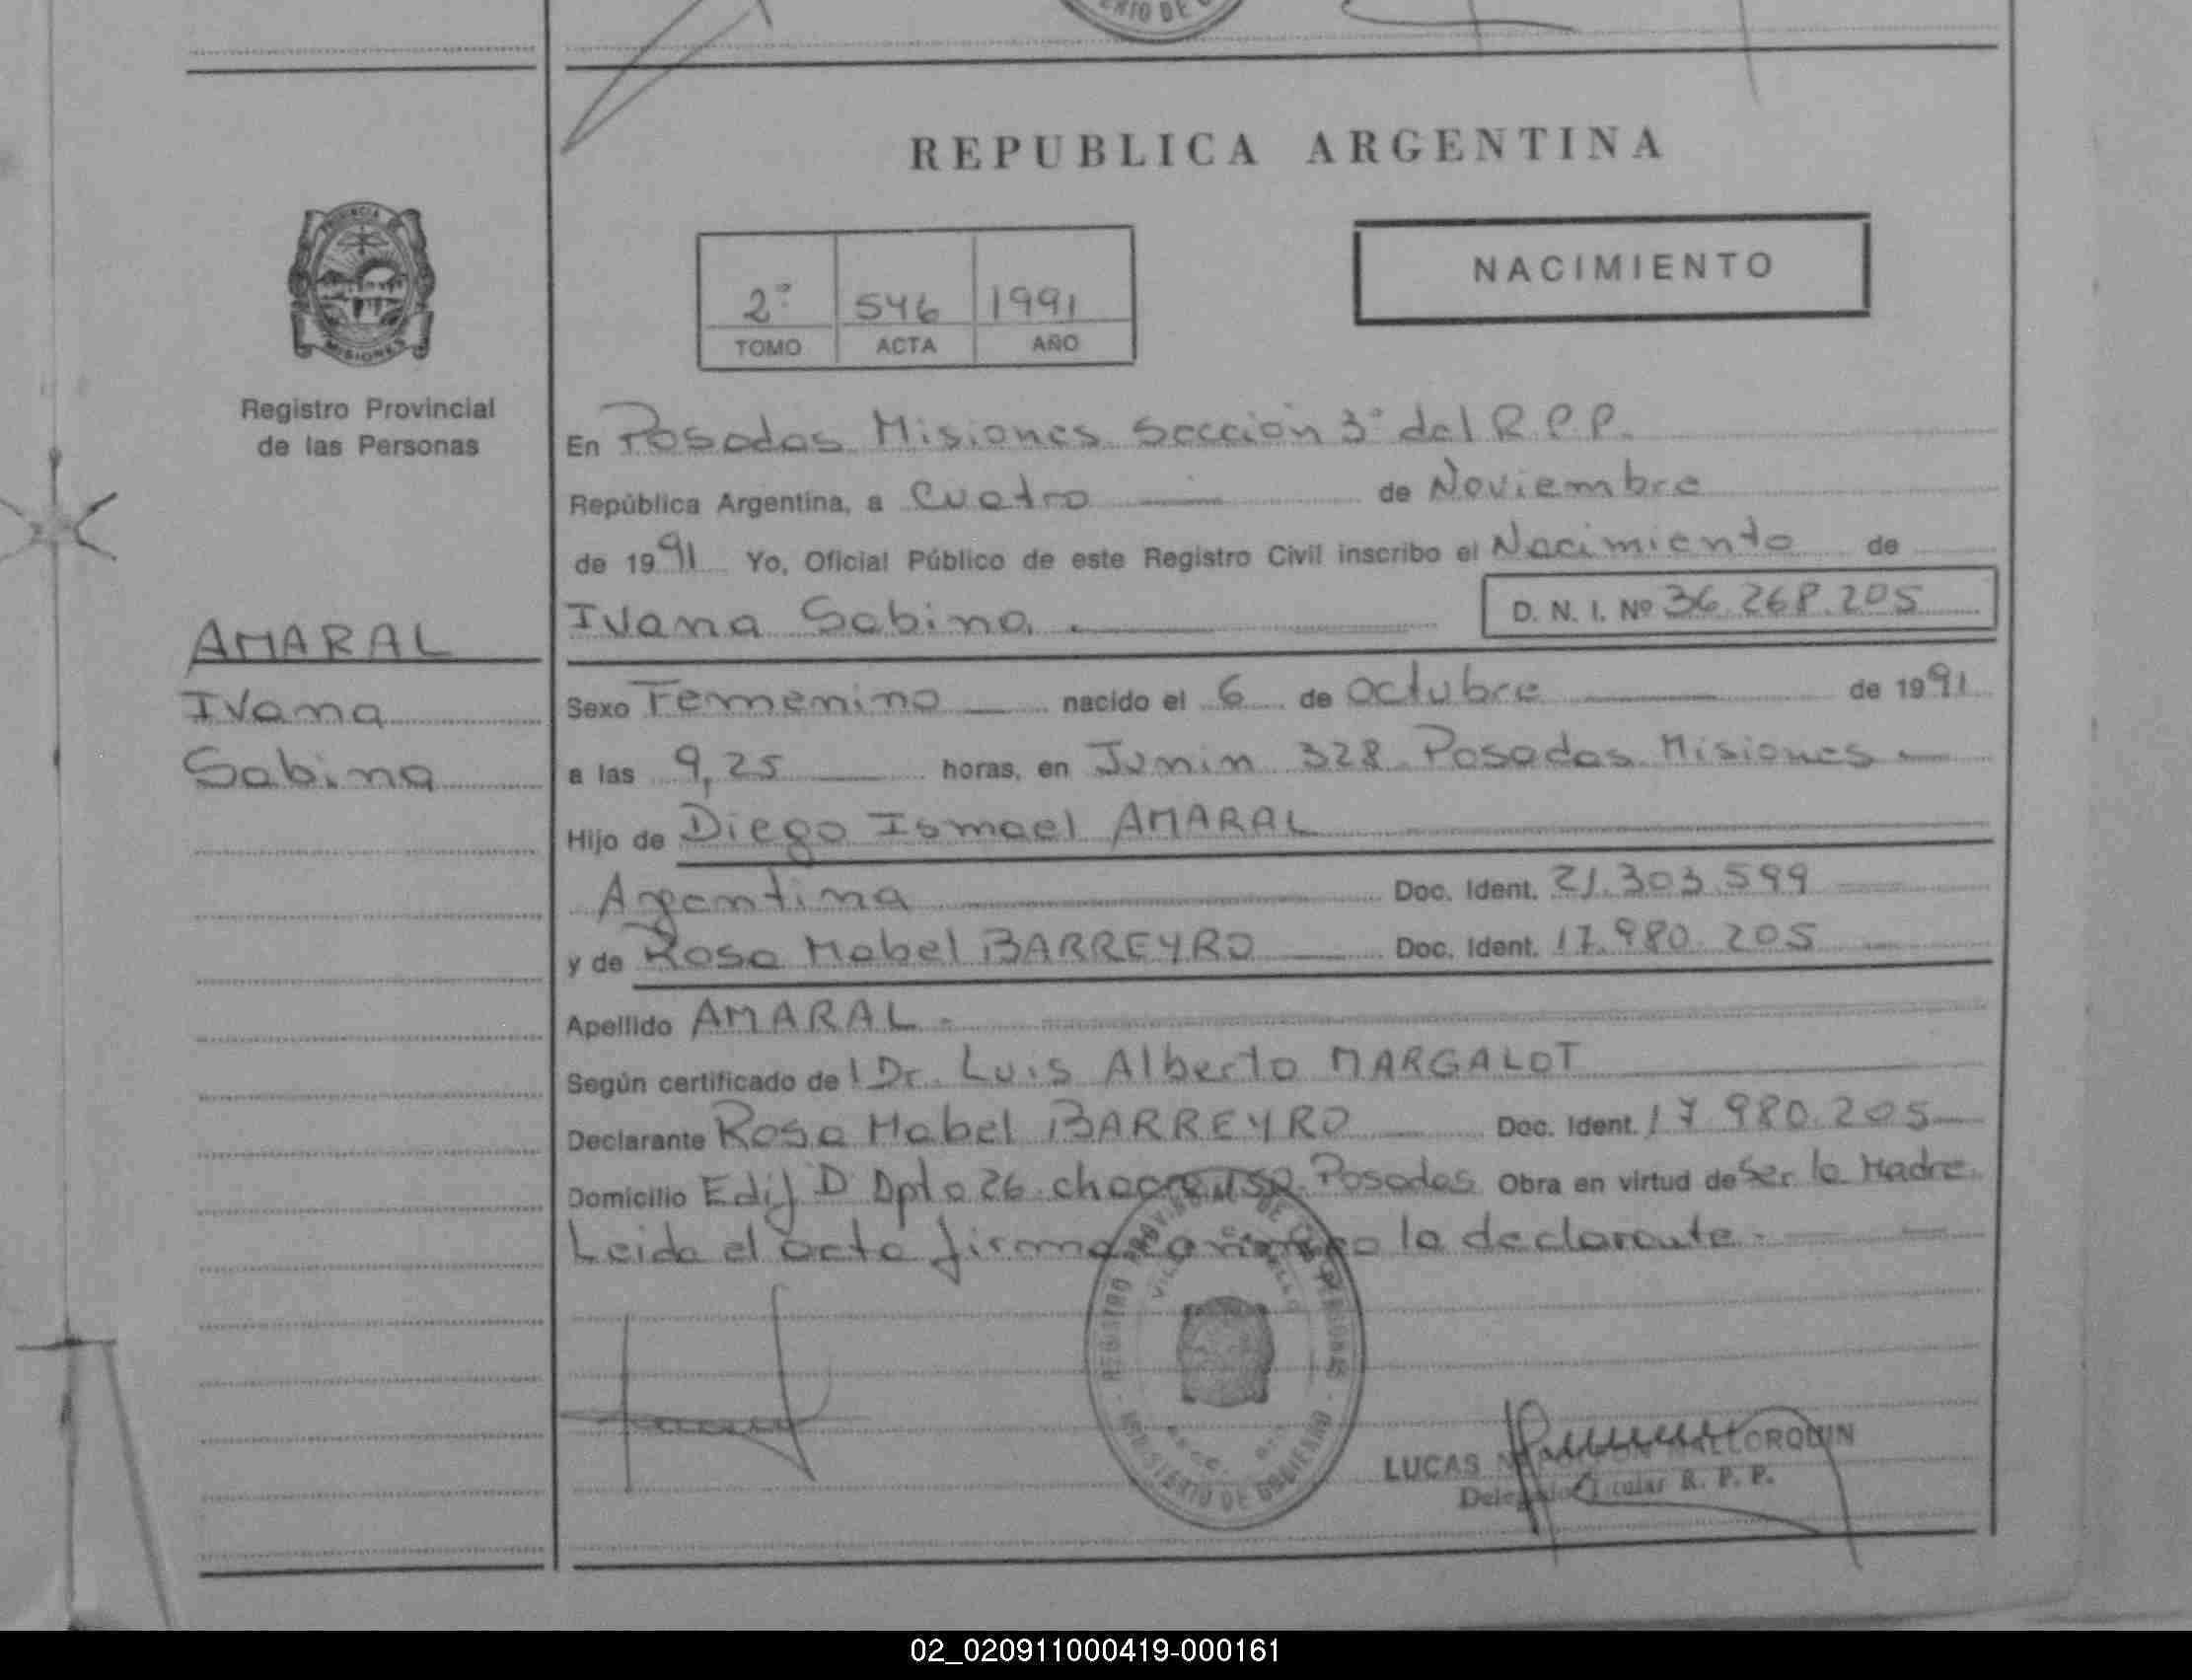 ERIO DE
REPUBLICA ARGENTINA
PROVINCIA
MISIONES
Registro Provincial
de las Personas
NACIMIENTO
2º 546 1991
TOMO ACTA AÑO
En Posadas Misiones Sección 3º del R.P.P.
República Argentina, a Cuatro de Noviembre
de 1991 Yo, Oficial Público de este Registro Civil inscribo el Nacimiento de
Ivana Sabina. D. N. I. Nº 36.268.205
AMARAL
Ivana
Sabina
Sexo Femenino nacido el 6 de Octubre de 1991
a las 9,25 horas, en Junin 328 Posadas Misiones
Hijo de Diego Ismael AMARAL
Argentina Doc. Ident. 21.303.599
y de Rosa Mabel BARREYRO Doc. Ident. 17.980.205
Apellido AMARAL.
Según certificado del Dr. Luis Alberto MARGALOT
Declarante Rosa Mabel BARREYRO Doc. Ident. 17.980.205
Domicilio Edif D Dpto 26 Posadas Obra en virtud de Ser la Madre.
Leida el acta firma la declarante.
REGISTRO PROVINCIAL DE LAS PERSONAS
MINISTERIO DE GOBIERNO
LUCAS MALLORQUIN
Delegado Titular R. P. P.
02_020911000419-000161